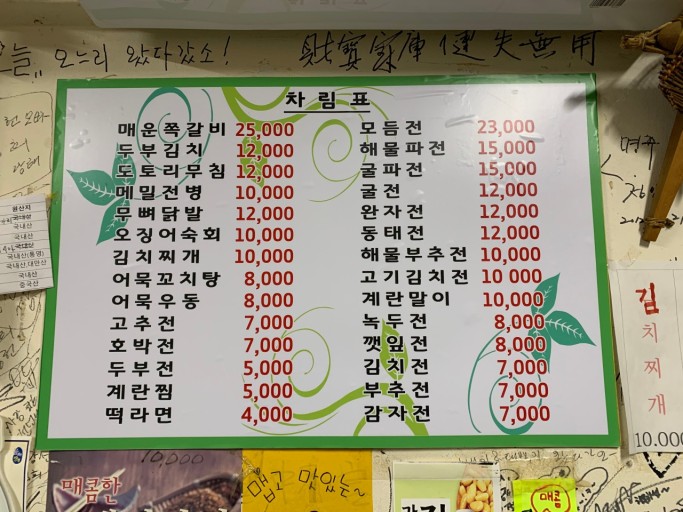 오늘,, 오느리 왔다갔소!
차림표
매운쪽갈비 25,000
두부김치 12,000
도토리무침 12,000
메밀전병 10,000
무뼈닭발 12,000
오징어숙회 10,000
김치찌개 10,000
어묵꼬치탕 8,000
어묵우동 8,000
고추전 7,000
호박전 7,000
두부전 5,000
계란찜 5,000
떡라면 4,000
모듬전 23,000
해물파전 15,000
굴파전 15,000
굴전 12,000
완자전 12,000
동태전 12,000
해물부추전 10,000
고기김치전 10 000
계란말이 10,000
녹두전 8,000
깻잎전 8,000
김치전 7,000
부추전 7,000
감자전 7,000
원산지
국내산
국내산
국내산
국내산
국내산(통영)
국내산,대만산
국내산
중국산
김
치
찌
개
10.000
10,000
매콤한
맵고 맛있는~
매콤